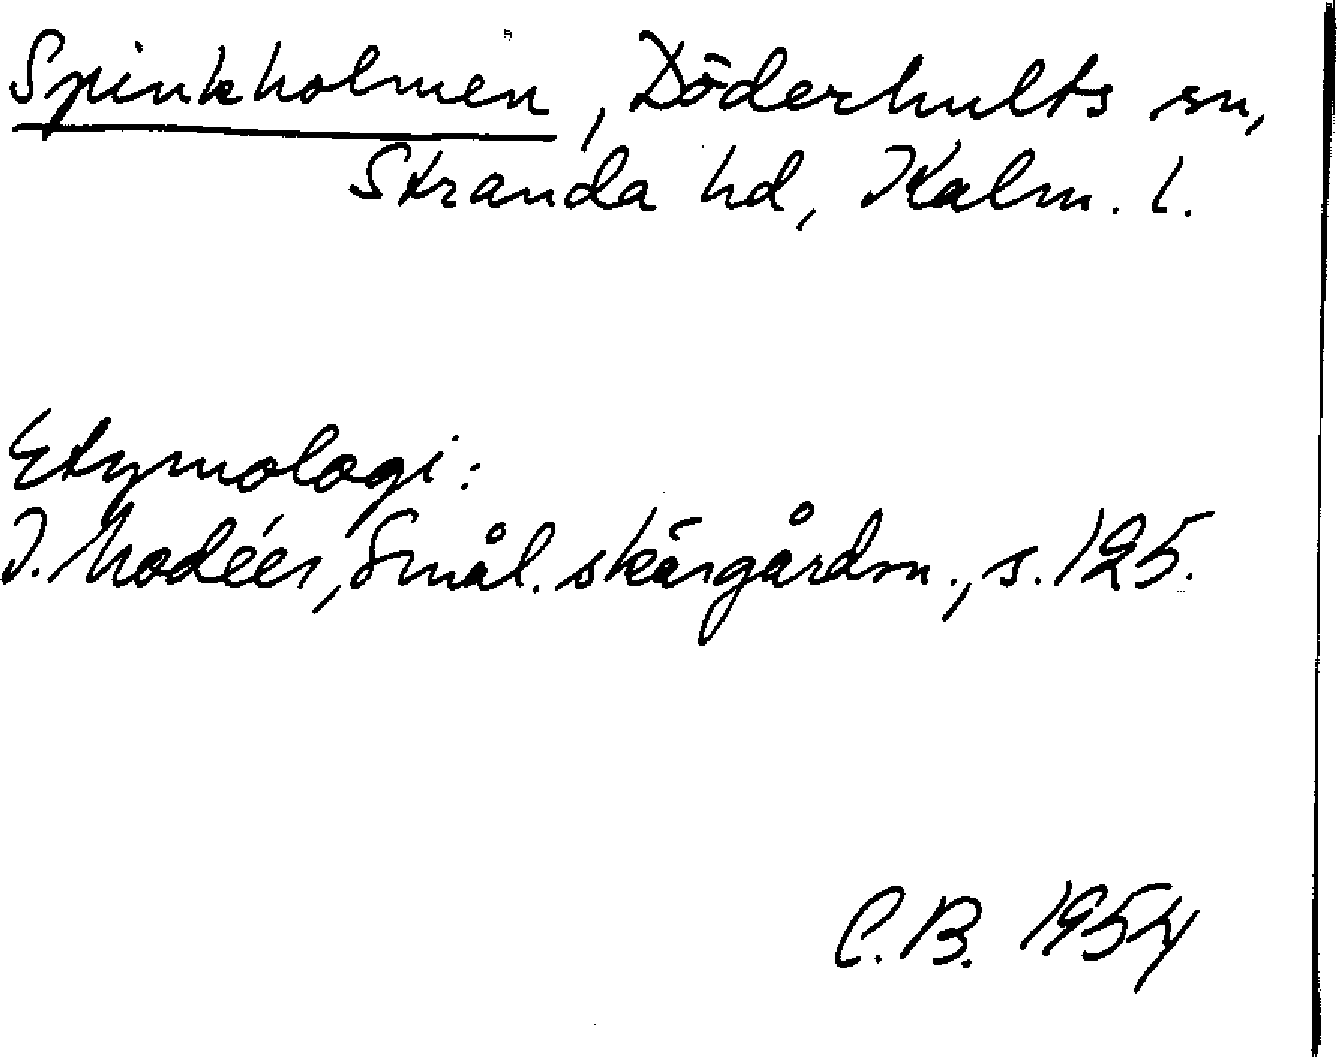 Spinkholmen, Döderhults sn,
Stranda hd, Kalm. l.
Etymologi:
I. Modéer, Smål. skärgårdsn., s. 125.
C.B. 1954